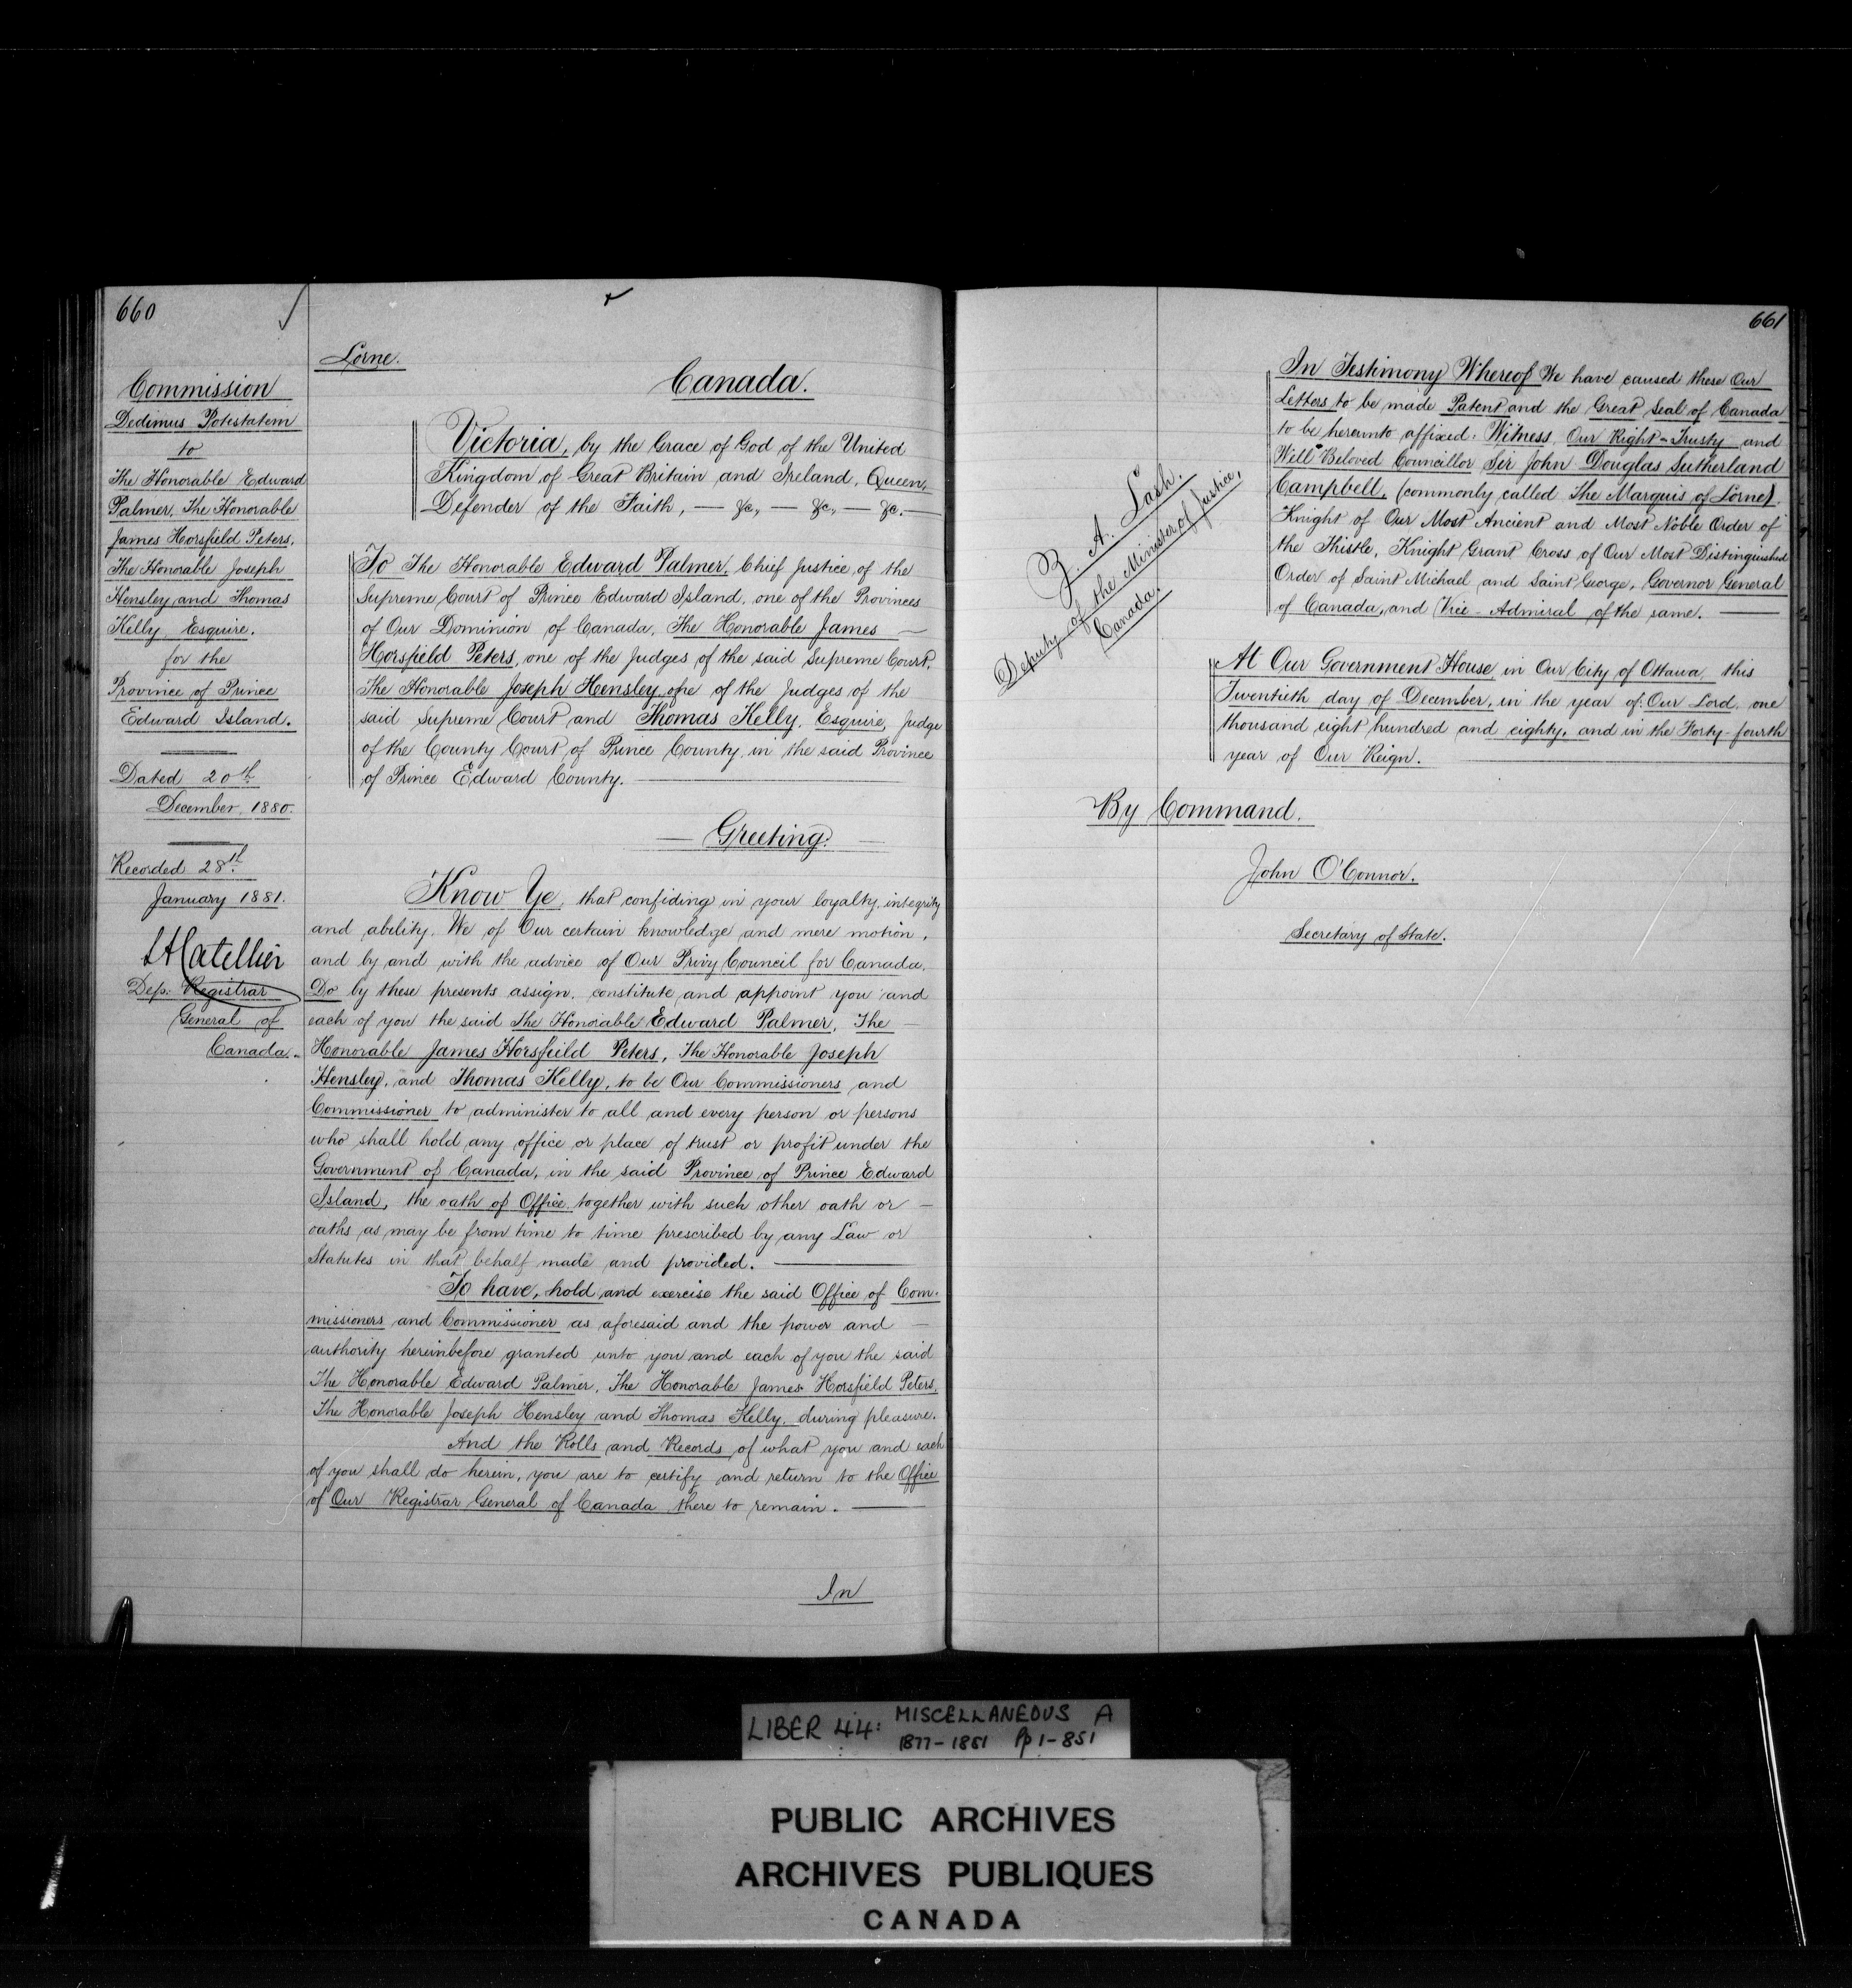 660
Commission
Dedimus Potestatem
to
The Honorable Edward
Palmer, The Honorable
James Horsfield Peters,
The Honorable Joseph
Hensley and Thomas
Kelly, Esquire,
for the
Province of Prince
Edward Island.
Dated 20th
December, 1880.
Recorded 28th
January 1881.
Dep. Registrar
General of
Canada.
Lorne.
Canada.
Victoria, by the Grace of God of the United
Kingdom of Great Britain and Ireland, Queen,
Defender of the Faith, — &c., — &c., — &c. —
To The Honorable Edward Palmer, Chief Justice of the
Supreme Court of Prince Edward Island, one of the Provinces
of Our Dominion of Canada, The Honorable James —
Horsfield Peters, one of the Judges of the said Supreme Court,
The Honorable Joseph Hensley, one of the Judges of the
said Supreme Court and Thomas Kelly, Esquire, Judge
of the County Court of Prince County, in the said Province
of Prince Edward County. —
— Greeting: —
Know Ye, that confiding in your loyalty, integrity
and ability, We of Our certain knowledge and mere motion,
and by and with the advice of Our Privy Council for Canada,
Do by these presents assign, constitute and appoint you and
each of you the said The Honorable Edward Palmer, The —
Honorable James Horsfield Peters, The Honorable Joseph
Hensley, and Thomas Kelly, to be Our Commissioners and
Commissioner to administer to all and every person or persons
who shall hold any office or place of trust or profit under the
Government of Canada, in the said Province of Prince Edward
Island, the oath of Office, together with such other oath or —
oaths as may be from time to time prescribed by any Law or
Statutes in that behalf made and provided. —
To have, hold and exercise the said Office of Com-
missioners and Commissioner as aforesaid and the power and —
authority hereinbefore granted unto you and each of you the said
The Honorable Edward Palmer, The Honorable James Horsfield Peters,
The Honorable Joseph Hensley and Thomas Kelly, during pleasure.
And the Rolls and Records of what you and each
of you shall do herein, you are to certify and return to the Office
of Our Registrar General of Canada there to remain. —
In
661
Z. A. Lash.
Deputy of the Minister of Justice,
Canada.
In Testimony Whereof We have caused these Our
Letters to be made Patent and the Great Seal of Canada
to be hereunto affixed: Witness, Our Right-Trusty and
Well-Beloved Councillor Sir John Douglas Sutherland
Campbell, (commonly called The Marquis of Lorne),
Knight of Our Most Ancient and Most Noble Order of
the Thistle, Knight Grant Cross of Our Most Distinguished
Order of Saint Michael and Saint George, Governor General
of Canada, and Vice-Admiral of the same. —
At Our Government House, in Our City of Ottawa, this
Twentieth day of December, in the year of Our Lord, one
thousand eight hundred and eighty, and in the Forty-fourth
year of Our Reign. —
By Command.
John O'Connor.
Secretary of State.
LIBER 44: MISCELLANEOUS A
1877-1881 Pp 1-851
PUBLIC ARCHIVES
ARCHIVES PUBLIQUES
CANADA